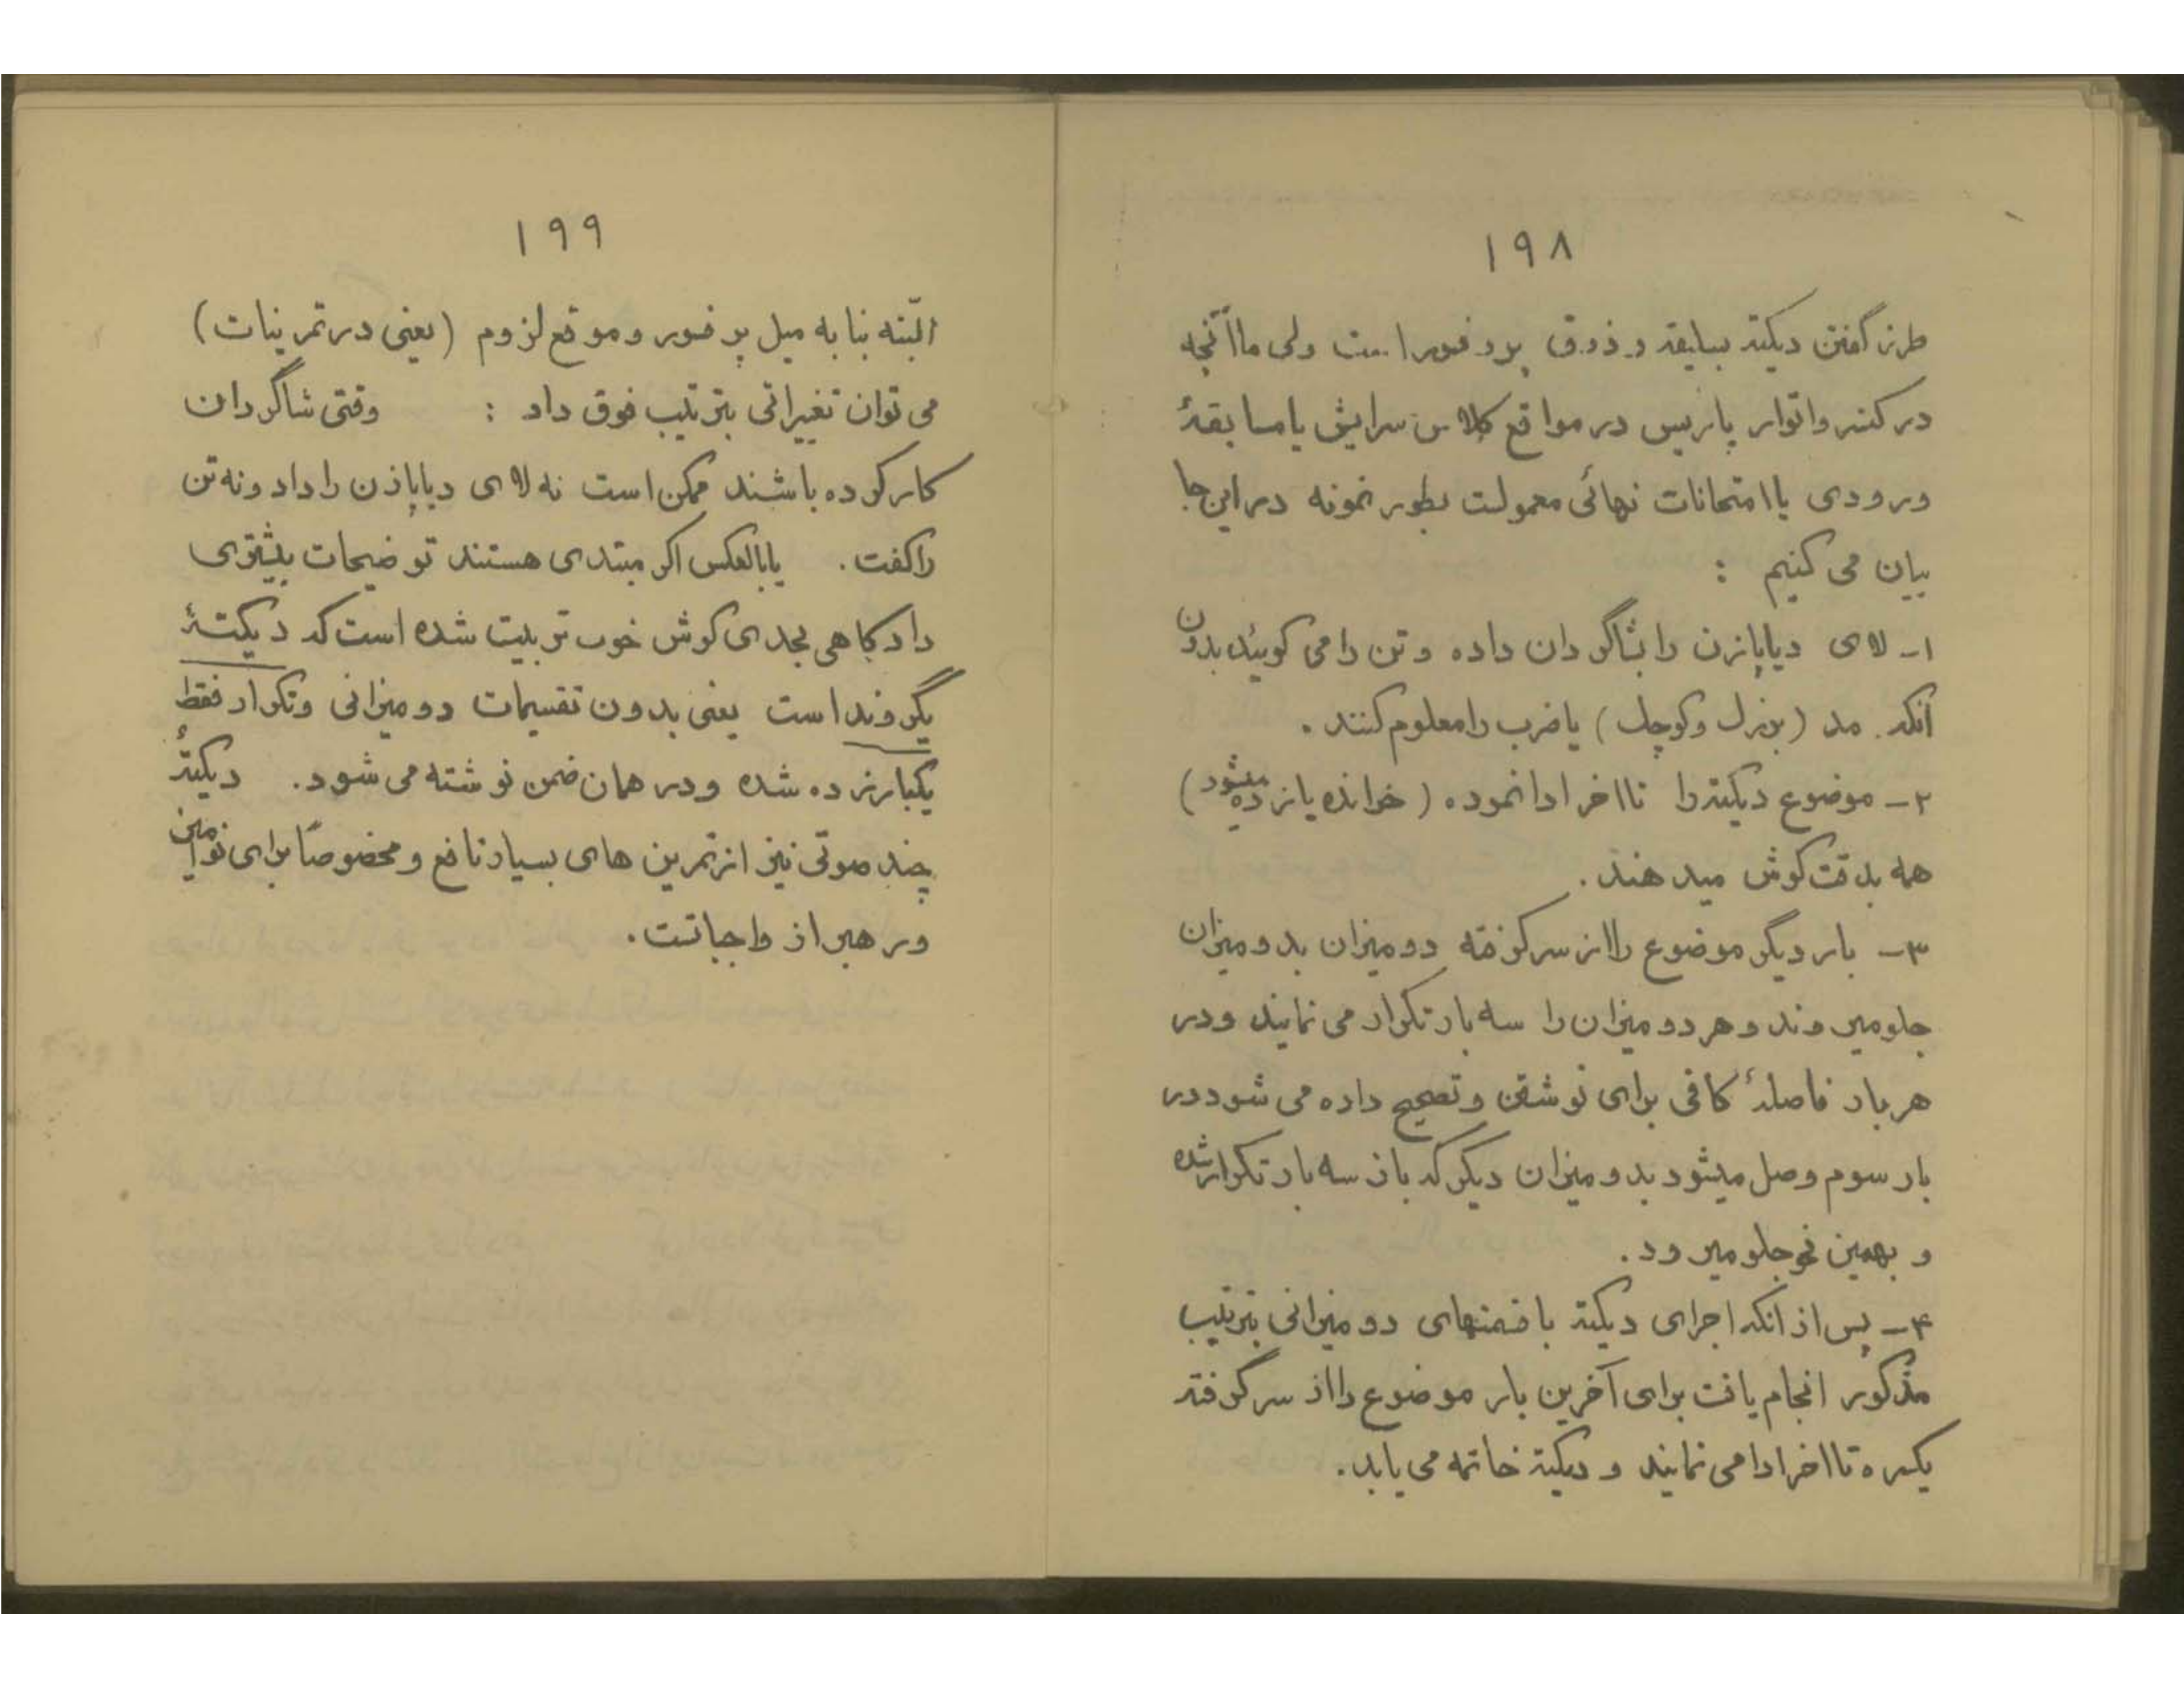 ۱۹۸
طرز گفتن دیکته بسلیقه و ذوق پروفسور است ولی ما آنچه
در کنسرواتوار پاریس در مواقع کلاس سرایش یا مسابقهٔ
ورودی یا امتحانات نهائی معمولست بطور نمونه در این جا
بیان می کنیم :
۱ـ لای دیاپازن را بشاگردان داده و تن را می گویند بدون
آنکه مد (بزرگ و کوچک) یا ضرب را معلوم کنند .
۲ـ موضوع دیکته را تا اخر ادا نموده (خوانده یا زده میشود)
همه بدقت گوش میدهند .
۳ـ بار دیگر موضوع را از سر گرفته دو میزان بدو میزان
جلو میروند و هر دو میزان را سه بار تکرار می نمایند و در
هر بار فاصلهٔ کافی برای نوشتن و تصحیح داده می شود در
بار سوم وصل میشود بدو میزان دیگر که باز سه بار تکرار شده
و بهمین نحو جلو میرود .
۴ـ پس از انکه اجرای دیکته با قسمتهای دو میزانی بترتیب
مذکور انجام یافت برای آخرین بار موضوع را از سر گرفته
یکسره تا اخر ادا می نمایند و دیکته خاتمه می یابد .
۱۹۹
البّته بنا به میل پرفسور و موقع لزوم (یعنی در تمرینات)
می توان تغیراتی بترتیب فوق داد : وقتی شاگردان
کار کرده باشند ممکن است نه لای دیاپازن را داد و نه تن
را گفت . یا بالعکس اگر مبتدی هستند توضیحات بیشتری
داد گاهی بحدی گوش خوب تربیت شده است که دیکتهٔ
یگروند است یعنی بدون تقسیمات دو میزانی و تکرار فقط
یکبار زده شده و در همان ضمن نوشته می شود . دیکتهٔ
چند صوتی نیز از تمرین های بسیار نافع و مخصوصاً برای نوامیز
و رهبر از واجباتست .